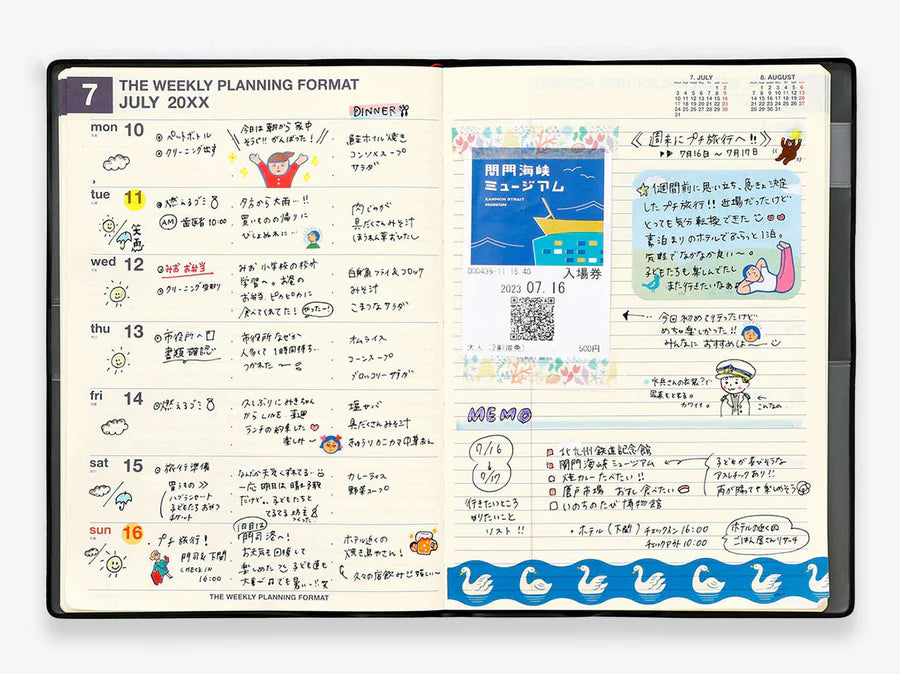 7
THE WEEKLY PLANNING FORMAT
JULY 20XX
DINNER
mon 10
ペットボトル
クリーニング出す
今日は朝から家中
そうじ!! がんばった!
鮭ホイル焼き
コンソメスープ
サラダ
tue 11
燃えるゴミ
AM 歯医者 10:00
夕方から大雨…!!
買いもの帰りに
びしょぬれに…
肉じゃが
具だくさんみそ汁
ほうれん草おひたし
wed 12
みお お弁当
クリーニング受取り
みお 小学校の校外
学習へ。お昼の
お弁当、ピカピカに
食べてくれてた!
やったー!
白身魚フライ&コロッケ
みそ汁
こまつなサラダ
thu 13
市役所へ
書類確認
市役所なぜか
人多くて1時間待ち…
つかれた
オムライス
コーンスープ
ブロッコリーサラダ
fri 14
燃えるゴミ
久しぶりにみきちゃん
からLINE. 来週
ランチの約束した
楽しみ〜
塩サバ
具だくさんみそ汁
きゅうりカニカマ中華あん
sat 15
旅行準備
買うもの
ハブラシセット
子どもたちおやつ
チケット
なんか天気くずれてる…
一応明日は晴れ予報
だけど。子どもたちと
てるてる坊主
つくった。
カレーライス
野菜スープ
sun 16
プチ旅行!
門司&下関
CHECK IN
16:00
1日目は
門司港へ!
お天気も回復して
楽しめた 子ども達も
大喜び でも暑い…!笑
ホテル近くの
焼き鳥やさん!
久々の店飲み 嬉しい〜
THE WEEKLY PLANNING FORMAT
7. JULY
8. AUGUST
《週末にプチ旅行へ!!》
▶▶ 7月16日 〜 7月17日
関門海峡
ミュージアム
KANMON STRAIT
MUSEUM
000439-11 15:40
入場券
2023 07.16
大人 (2割減免) 500円
1週間前に思い立ち、急きょ決定
したプチ旅行!! 近場だったけど
とっても気分転換できた
素泊まりのホテルでふらっと1泊。
気軽でなかなか良い〜。
子どもたちも楽しんでたし
また行きたいなぁ
今回初めて行ったけど
めちゃ楽しかった!!
みんなに おすすめしよ〜
水兵さんの衣装?で
写真もとれる。
カワイイ。
こんなの。
MEMO
7/16
↓
7/17
行きたいところ
知りたいこと
リスト!!
北九州鉄道記念館
関門海峡ミュージアム
焼カレーたべたい!!
唐戸市場 おすし食べたい
いのちのたび博物館
子どもが喜びそうな
アスレチックあり!!
雨が降っても楽しめそう
・ホテル(下関) チェックイン 16:00
チェックアウト 10:00
ホテルの近くの
ごはん屋さんリサーチ